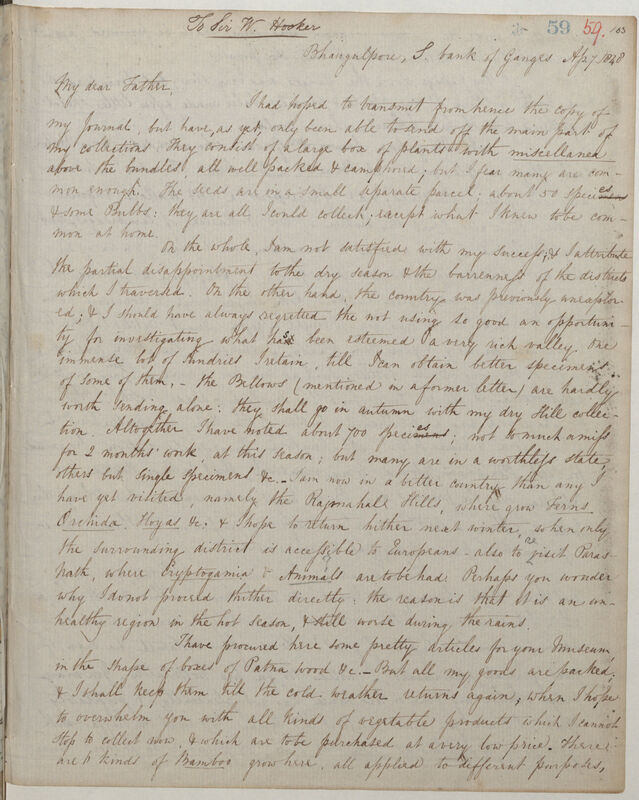 To Sir W. Hooker
59 59. 103
Bhaugulpore, S. bank of Ganges Ap. 7 1848
My dear Father,
I had hoped to transmit from hence the copy of
my Journal, but have, as yet, only been able to send off the main part of
my collections. They consist of a large box of plants with miscellanea
above the bundles, all well packed & camphored; but I fear many are com-
mon enough. The seeds are in a small separate parcel; about 50 species
& some Bulbs: they are all I could collect, except what I knew to be com-
mon at home.
On the whole, I am not satisfied with my success; & I attribute
the partial disappointment to the dry season & the barrenness of the districts
which I traversed. On the other hand, the country was previously unexplor-
ed; & I should have always regretted the not using so good an opportuni-
ty for investigating what has been esteemed a very rich valley. One
immense lot of sundries I retain, till I can obtain better specimens
of some of them, - the Bellows (mentioned in a former letter) are hardly
worth sending alone: they shall go in autumn with my dry Hill collec-
tion. Altogether I have noted about 700 species; not so much amiss
for 2 months' work, at this season; but many are in a worthless state,
others but single specimens &c. - I am now in a better country than any I
have yet visited, namely the Rajmahale Hills, where grow Ferns
Orchida, Hoyas, &c: & I hope to return hither next winter, when only
the surrounding district is accessible to Europeans - also to revisit Paras-
nath, where Cryptogamia & Animals are to be had: Perhaps you wonder
why I do not proceed thither directly: the reason is that it is an un-
healthy region in the hot season, & still worse during the rains.
I have procured here some pretty articles for your Museum
in the shape of boxes of Patna wood &c. - But all my goods are packed,
& I shall keep them till the cold weather returns again, when I hope
to overwhelm you with all kinds of vegetable products which I cannot
stop to collect now, & which are to be purchased at a very low price. There
are 6 kinds of Bamboo grow here, all applied to different purposes,